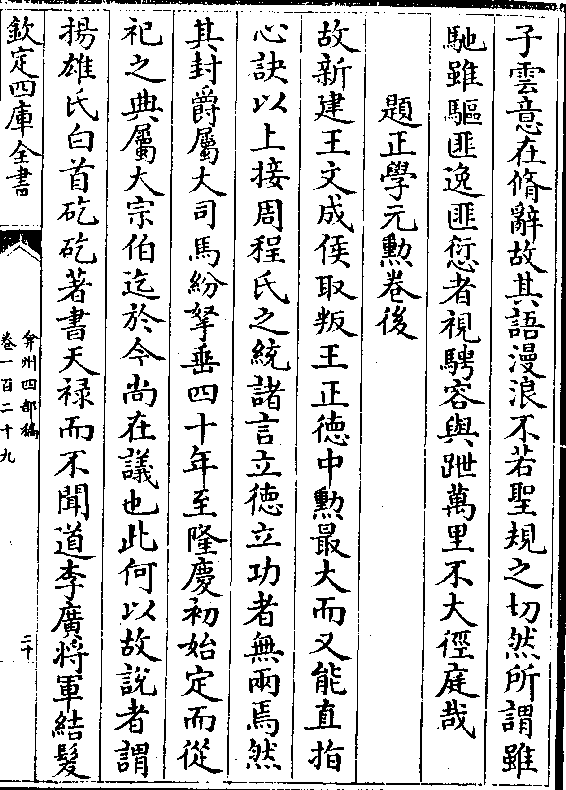 子雲意在脩辭故其語漫浪不若聖規之切然所謂雖
馳雖驅匪逸匪愆者視騁容與跇萬里不大徑庭哉
題正學元勲卷後
故新建王文成侯取叛王正徳中勲最大而又能直指
心訣以上接周程氏之統諸言立徳立功者無兩焉然
其封爵屬大司馬紛拏垂四十年至隆慶初始定而從
祀之典屬大宗伯迄於今尚在議也此何以故說者謂
揚雄氏白首矻矻著書天禄而不聞道李廣將軍結髪
欽定四庫全書
弇州四部稿
卷一百二十九
二十